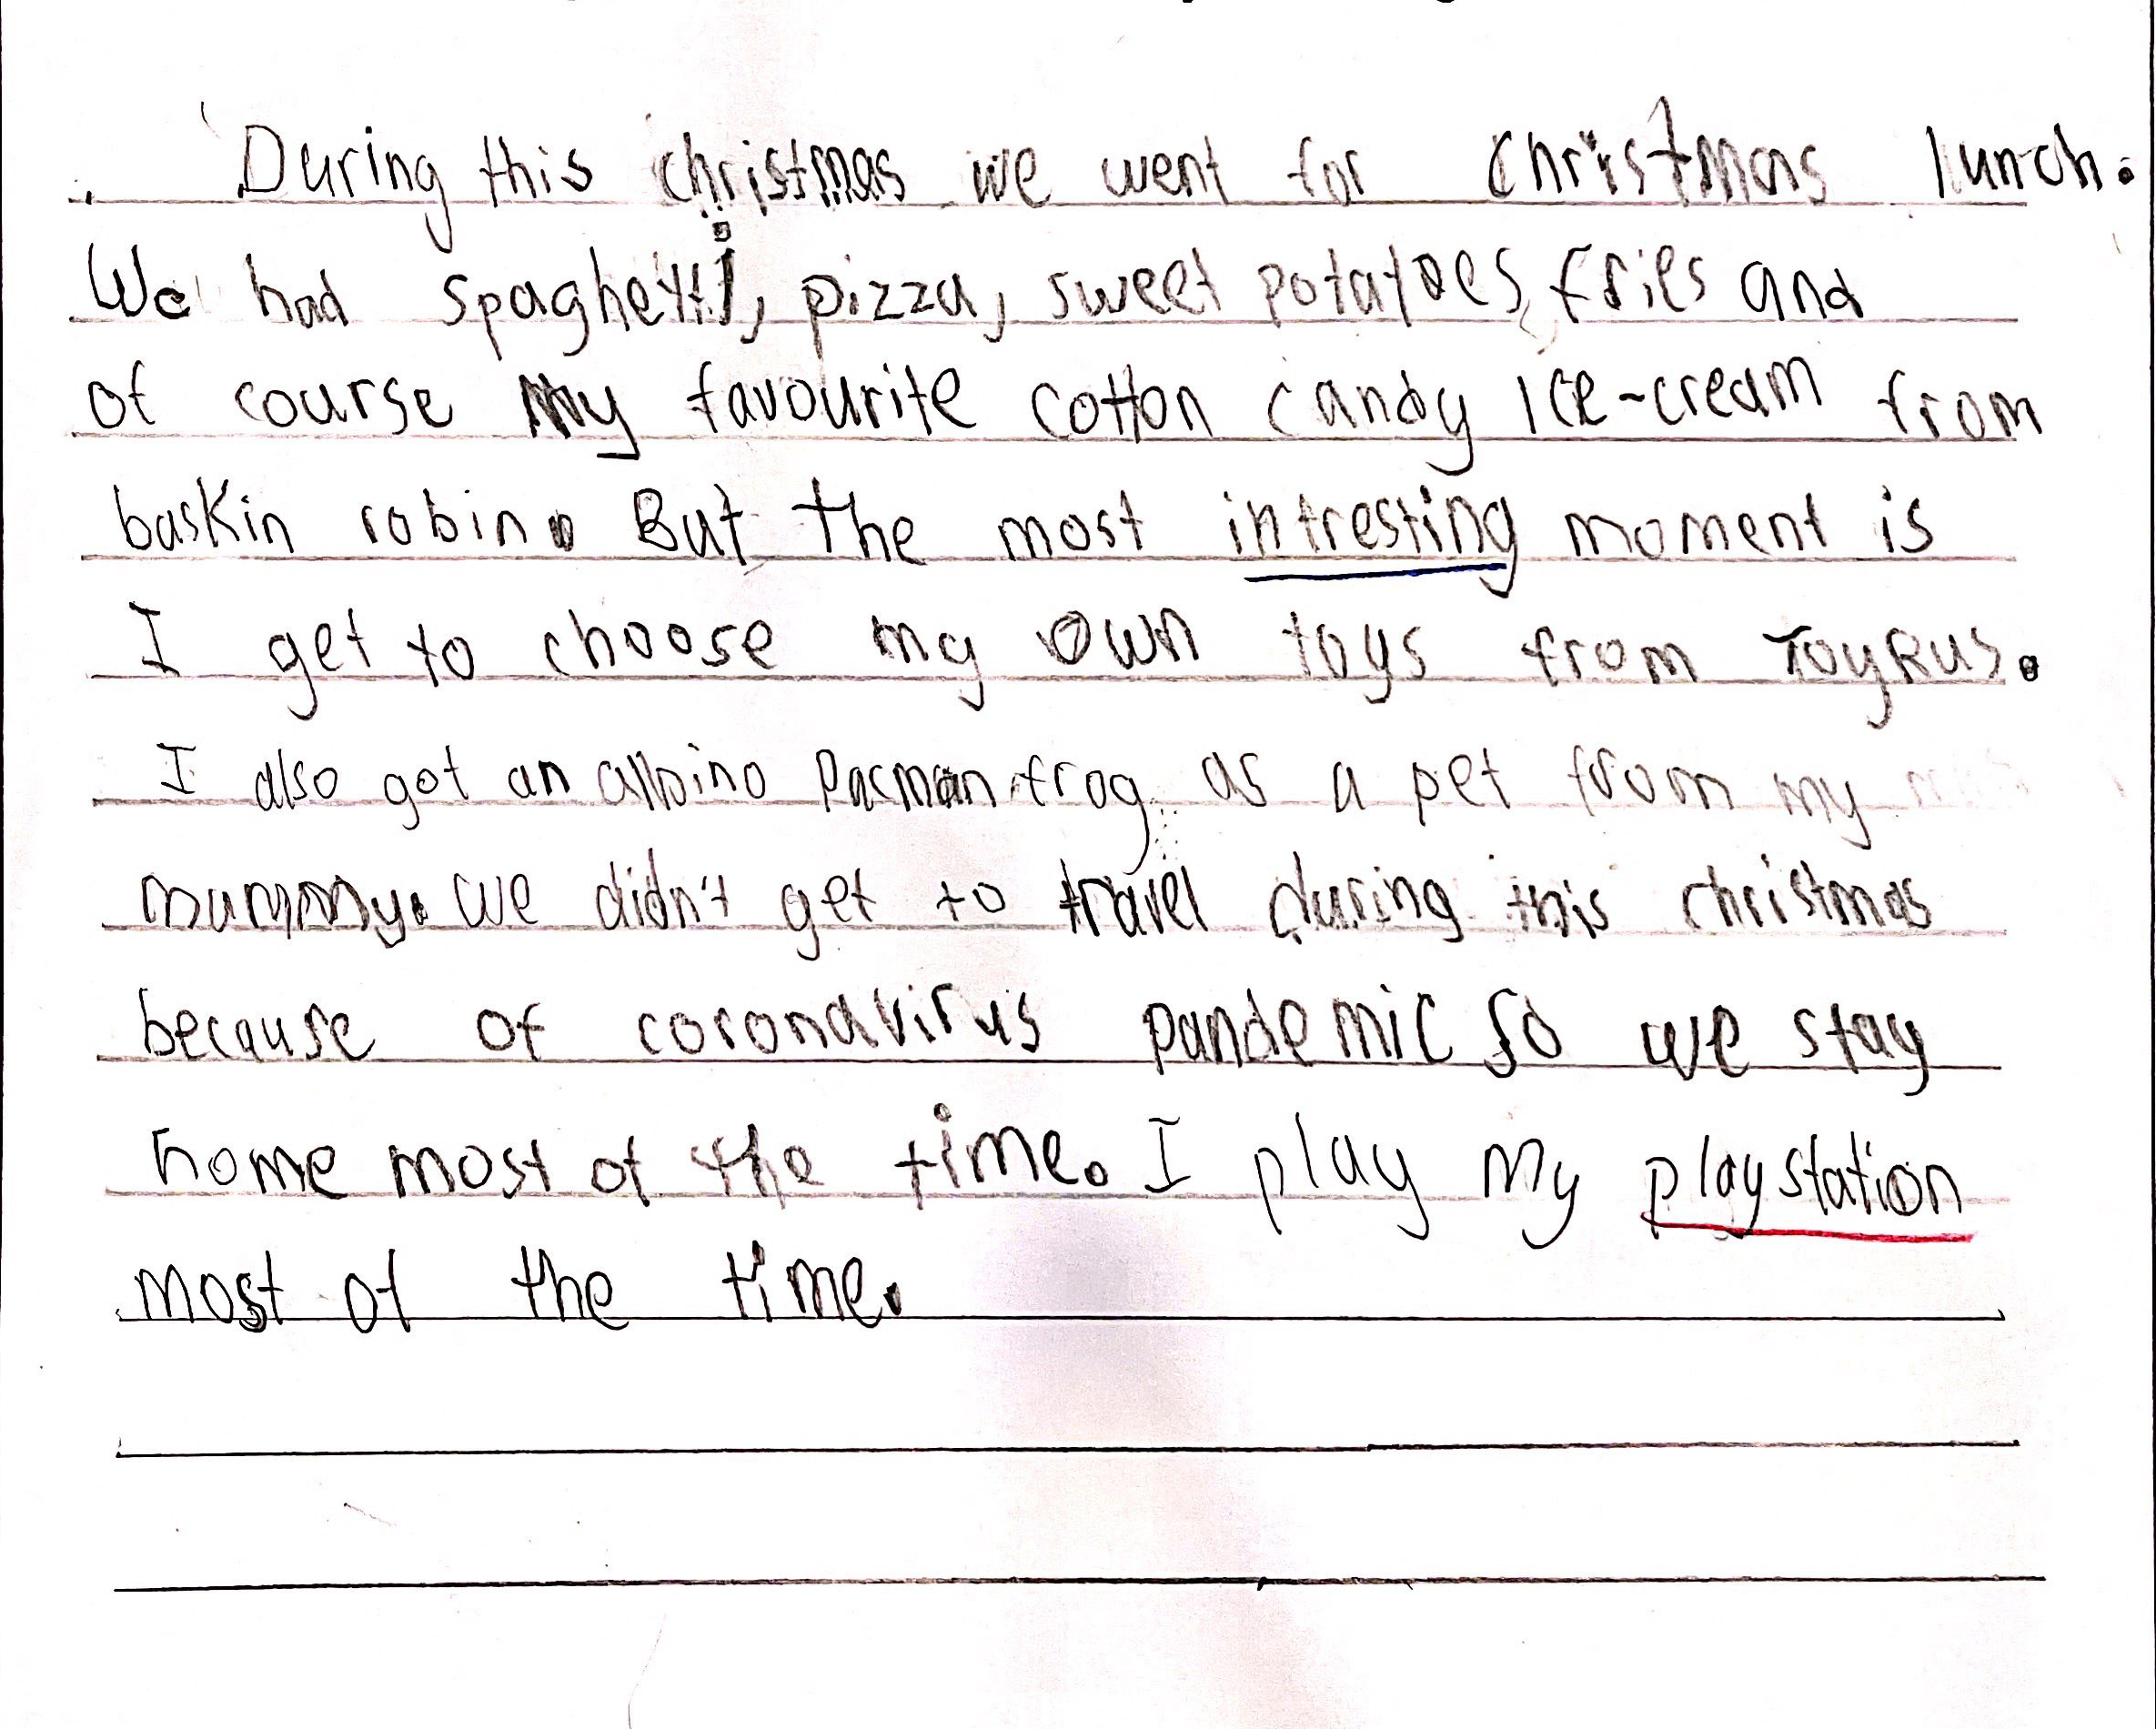 During this christmas we went for Christmas lunch.
We had spaghetti, pizza, sweet potatoes, fries and
of course my favourite cotton candy ice-cream from
baskin robin. But the most intresting moment is
I get to choose my own toys from ToyRus.
I also got an albino Pacman frog as a pet from my
mummy. We didn't get to travel during this christmas
because of coronavirus pandemic so we stay
home most of the time. I play my playstation
most of the time.